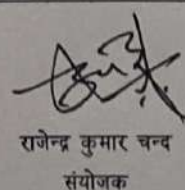 राजेन्द्र कुमार चन्द
संयोजक